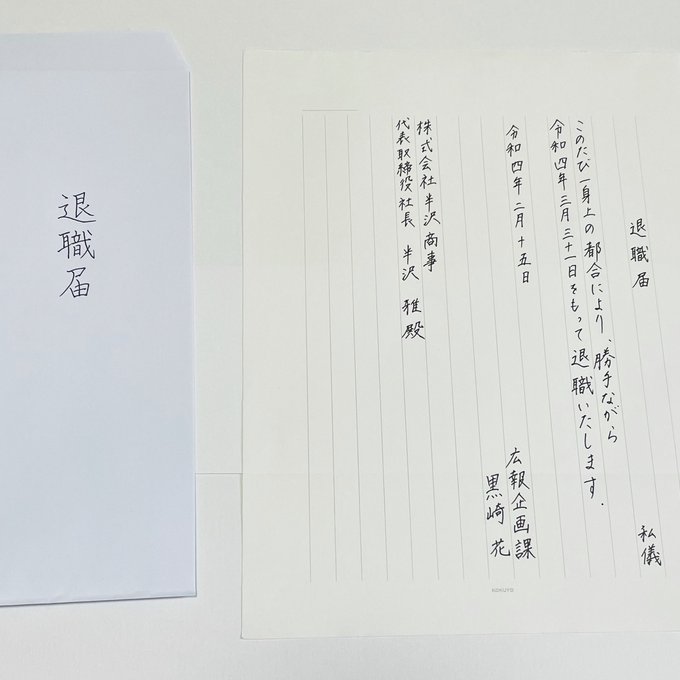 退職届
退職届
私儀
このたび一身上の都合により、勝手ながら
令和四年三月三十一日をもって退職いたします。
令和四年二月十五日
広報企画課
黒崎 花
株式会社半沢商事
代表取締役社長 半沢 雅殿
KOKUYO